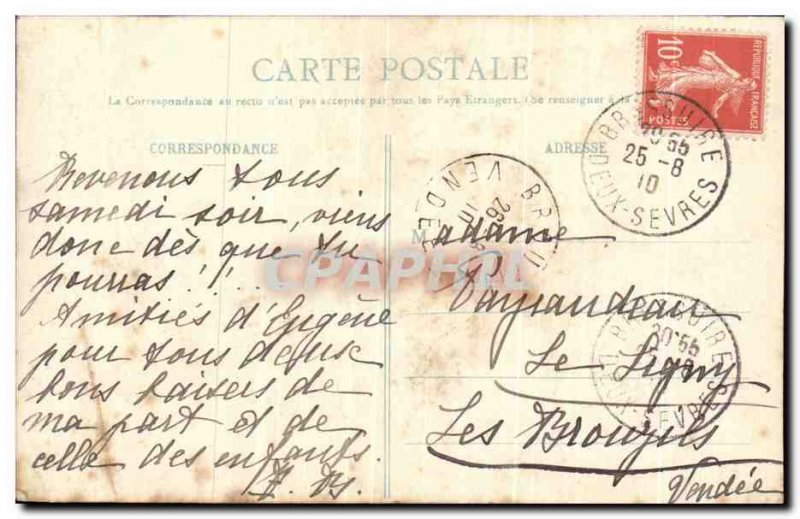 CARTE POSTALE
La Correspondance au recto n'est pas acceptée par tous les Pays Etrangers. (Se renseigner à la
CORRESPONDANCE
ADRESSE
Revenons tous
samedi soir, viens
donc dès que tu
pourras!!..
Amitiés d'Eugène
pour tous deux
bons baisers de
ma part et de
celle des enfants.
Madame
Le Ligny
Les Brouzils
Vendée
10c
REPUBLIQUE FRANÇAISE
POSTES
BRESSUIRE
20·55
25 -8
10
DEUX-SEVRES
VENDEE
26
BRESSUIRE
20·55
DEUX-SEVRES
CPAPHIL